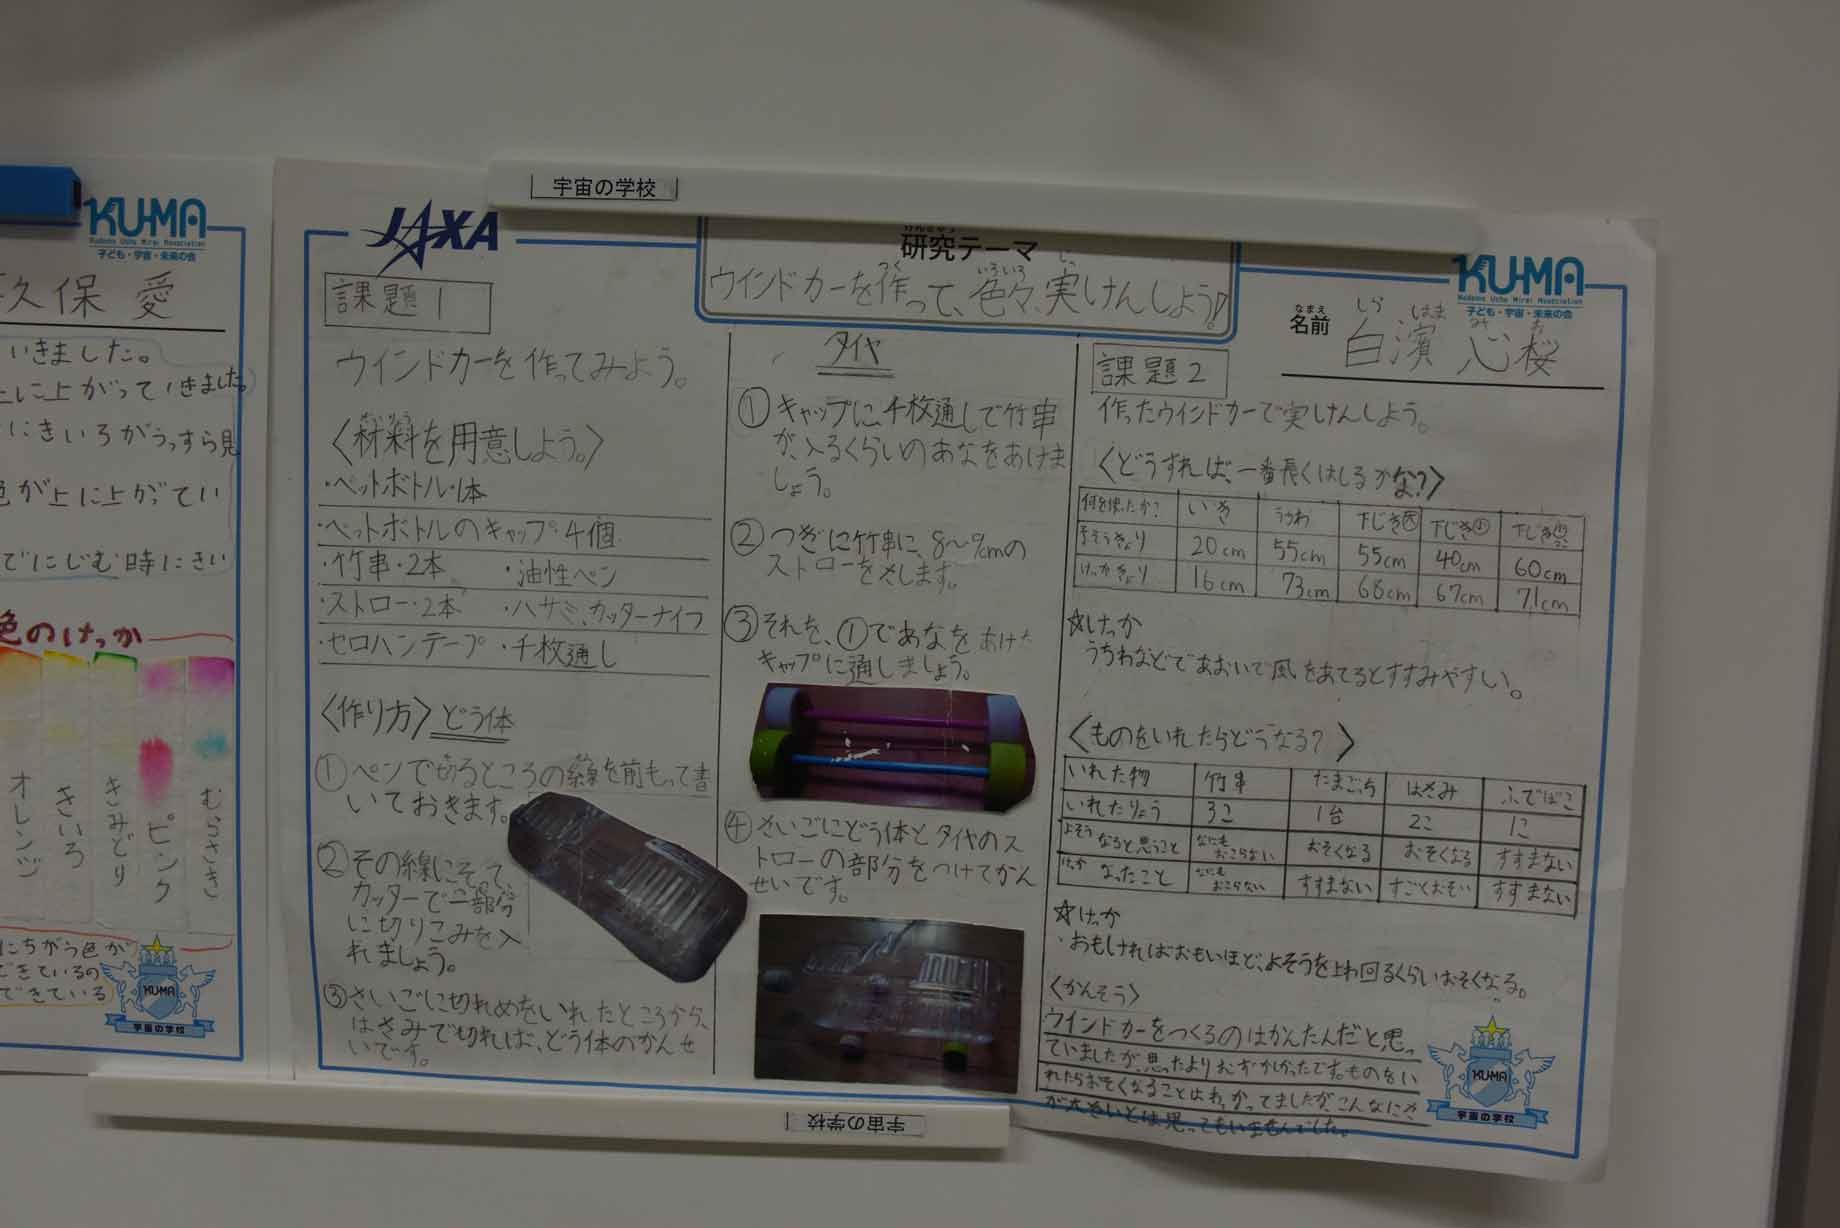 宇宙の学校
KU-MA
Kodomo Uchu Mirai Association
子ども・宇宙・未来の会
久保 愛
いきました。
上に上がっていきました。
にきいろがうっすら見
色が上に上がってい
でにじむ時にきい
色のけっか
オレンジ
きいろ
きみどり
ピンク
むらさき
にちがう色が
できているの
できている
KUMA
宇宙の学校
JAXA
研究テーマ
ウインドカーを作って、色々、実けんしよう!
つく
いろいろ
じっ
KU-MA
Kodomo Uchu Mirai Association
子ども・宇宙・未来の会
なまえ
名前
しら はま み お
白濱 心桜
課題1
ウインドカーを作ってみよう。
ざいりょう
〈材料を用意しよう。〉
・ペットボトル・1本
・ペットボトルのキャップ・4個
・竹串・2本 ・油性ペン
・ストロー・2本 ・ハサミ、カッターナイフ
・セロハンテープ ・千枚通し
〈作り方〉どう体
①ペンで切るところの線を前もって書
いておきます。
②その線にそて
カッターで一部分
に切りこみを入
れましょう。
③さいごに切れめをいれたところから、
はさみで切れば、どう体のかんせ
いです。
タイヤ
①キャップに、千枚通しで竹串
が、入るくらいのあなをあけま
しょう。
②つぎに竹串に、8〜9cmの
ストローをさします。
③それを、①であなをあけた
キャップに通しましょう。
④さいごにどう体とタイヤのス
トローの部分をつけてかん
せいです。
課題2
作ったウインドカーで実けんしよう。
〈どうすれば、一番長くはしるかな?〉
何を使ったか? いき うちわ 下じき大 下じき小
よそうきょり 20cm 55cm 55cm 40cm 60cm
けっかきょり 16cm 73cm 68cm 67cm 71cm
☆けっか
うちわなどであおいで風をあてるとすすみやすい。
〈ものをいれたらどうなる?〉
いれた物 竹串 たまごっち はさみ ふでばこ
いれたりょう 3こ 1台 2こ 1こ
よそう なると思うこと なにもおこらない おそくなる おそくなる すすまない
けっか なったこと なにもおこらない すすまない すごくおそい すすまない
☆けっか
・おもしければおもいほど、よそうを上わ回るくらいおそくなる。
〈かんそう〉
ウインドカーをつくるのはかんたんだと思っ
ていましたが、思ったよりむずかしかったです。ものをい
れたらおそくなることはわかってましたが、こんなにさ
が大きいとは思ってもいませんでした。
KUMA
宇宙の学校
宇宙の学校